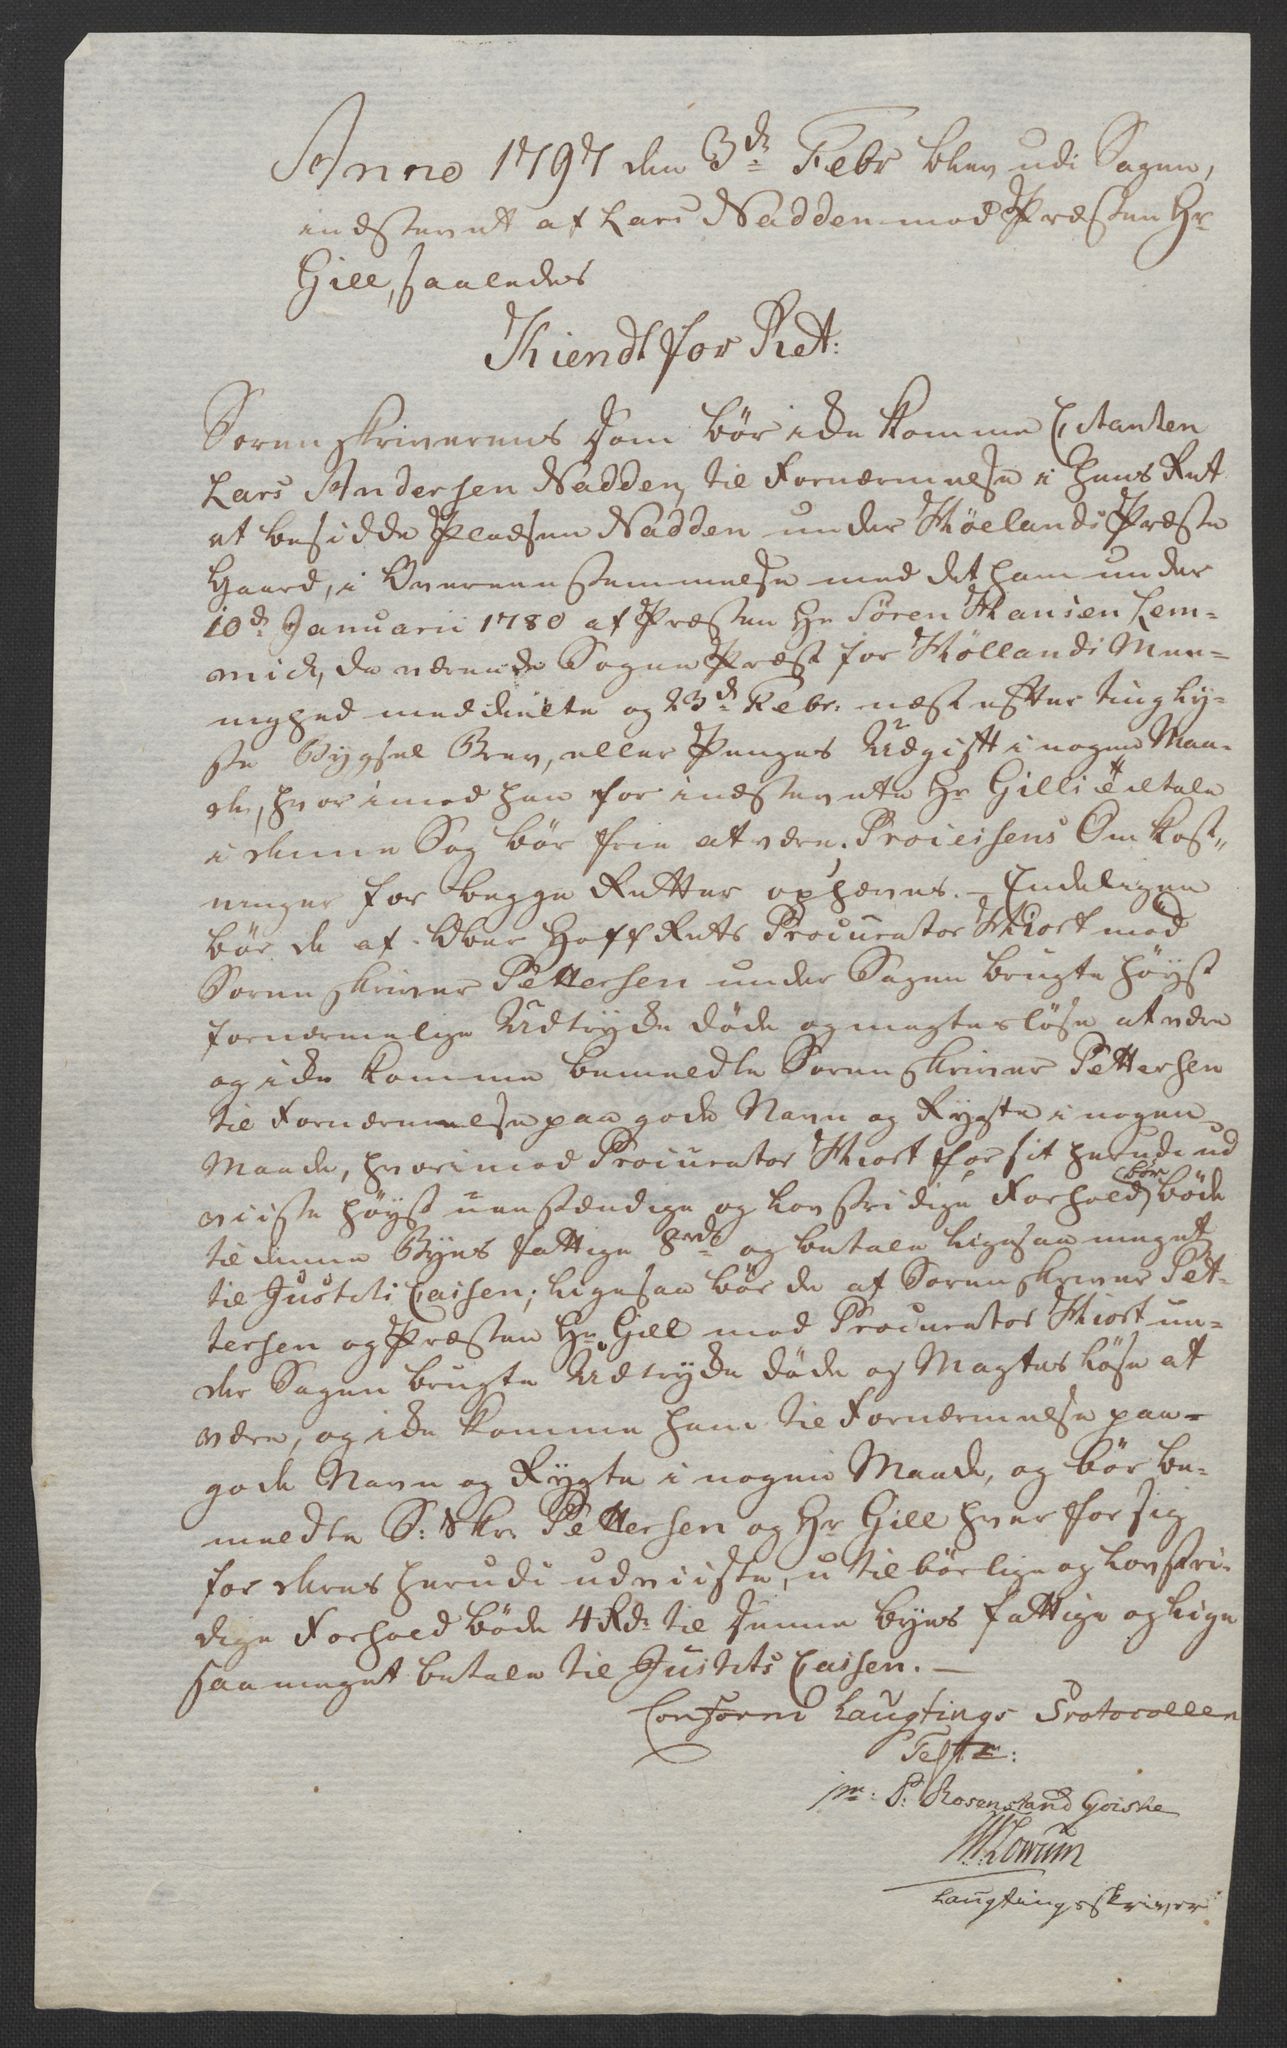 Anno 1797 den 3de Febr blev udi Sagen,
indstevnt af Lars Nadden mod Præsten Hr
Gill, saaledes
Kiendt for Ret:
Sorenskriverens Dom bør icke komme Citanten
Lars Andersen Nadden, til Fornærmelse i hans Ret
at besidde Pladsen Nadden under Høelands Præste
Gaard, i Overeensstemmelse med det ham under
10de Januarii 1780 af Præsten Hr Søren Hansen Lem-
mich, da værende Sogne Præst for Høllands Mee-
nighed meddeelte og 23de Febr: næst efter tingly-
ste Bygsel Brev, eller Penges Udgift i nogen Maa-
de, hvorimod han for indstevnte Hr Gills Tiltale
i denne Sag bør frie at være; Processens Omkost-
ninger for begge Retter ophæves. - Endeligen
bør de af Over Hoff Rets Procurator Hiort mod
Sorenskriver Pettersen under Sagen brugte høyst
fornærmelige Udtrycke døde og magtesløse at være
og icke komme bemeldte Sorenskriver Pettersen
til Fornærmelse paa gode Navn og Rygte i nogen
Maade, hvorimod Procurator Hiort for sit herudi ud
viiste høyst uanstændige og lovstridige Forhold bør bøde
til denne Byes fattige 8rd og betale ligesaa meget
til Justits Cassen; ligesaa bør de af Sorenskriver Pet-
tersen og Præsten Hr Gill mod Procurator Hiort un-
der Sagen brugte Udtrycke døde og Magtesløse at
være, og icke komme ham til Fornærmelse paa
gode Navn og Rygte i nogen Maade, og bør be-
meldte S: Skr. Pettersen og Hr Gill hver for sig
for deres herudi udviiste, utilbørlige og lovstri-
dige Forhold bøde 4 Rd: til denne byes fattige og lige
saa meget betale til Justits Cassen. -
Conform Laugtings Protocollen
Test:
P: Rosenstand Goiske
Lowum
Laugtingsskriver